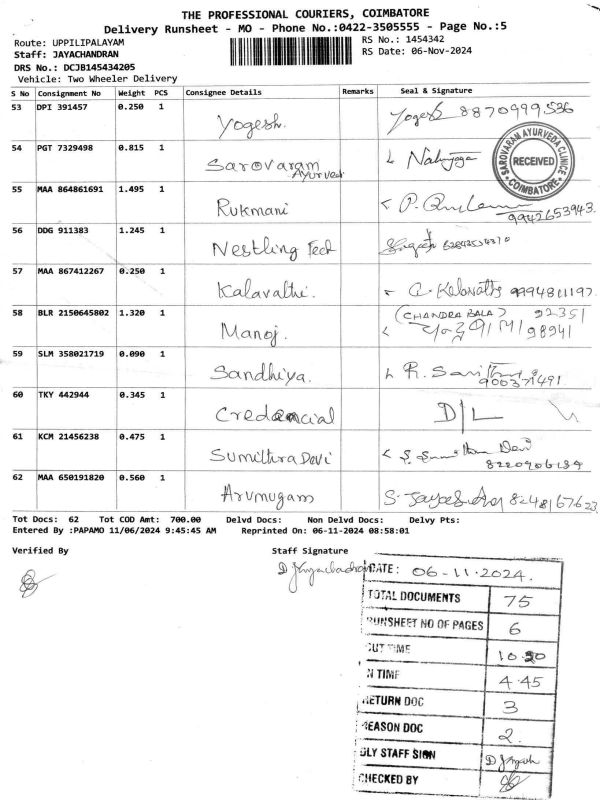 THE PROFESSIONAL COURIERS, COIMBATORE
Delivery Runsheet - MO - Phone No.:0422-3505555 - Page No.:5
Route: UPPILIPALAYAM
RS No.: 1454342
Staff: JAYACHANDRAN
RS Date: 06-Nov-2024
DRS No.: DCJB145434205
Vehicle: Two Wheeler Delivery
S No Consignment No Weight PCS Consignee Details Remarks Seal & Signature
53 DPI 391457 0.250 1 Yogesh. Yogesh 8870999536
54 PGT 7329498 0.815 1 Sarovaram Ayurved
SAROVARAM AYURVEDA CLINIC
RECEIVED
COIMBATORE
55 MAA 864861691 1.495 1 Rukmani 9942653943
56 DDG 911383 1.245 1 Nestling Feet
57 MAA 867412267 0.250 1 Kalavathi. 9994811197
58 BLR 2150645802 1.320 1 Manoj. (CHANDRA BALA) 92351
98941
59 SLM 358021719 0.090 1 Sandhiya. R.
60 TKY 442944 0.345 1 Credencial D/L
61 KCM 21456238 0.475 1 Sumithra Devi Devi
62 MAA 650191820 0.560 1 Arumugam 8248167623
Tot Docs: 62 Tot COD Amt: 700.00 Delvd Docs: Non Delvd Docs: Delvy Pts:
Entered By :PAPAMO 11/06/2024 9:45:45 AM Reprinted On: 06-11-2024 08:58:01
Verified By
Staff Signature
DATE: 06-11-2024.
TOTAL DOCUMENTS 75
RUNSHEET NO OF PAGES 6
OUT TIME 10.20
IN TIME 4.45
RETURN DOC 3
REASON DOC 2.
DLY STAFF SIGN
CHECKED BY